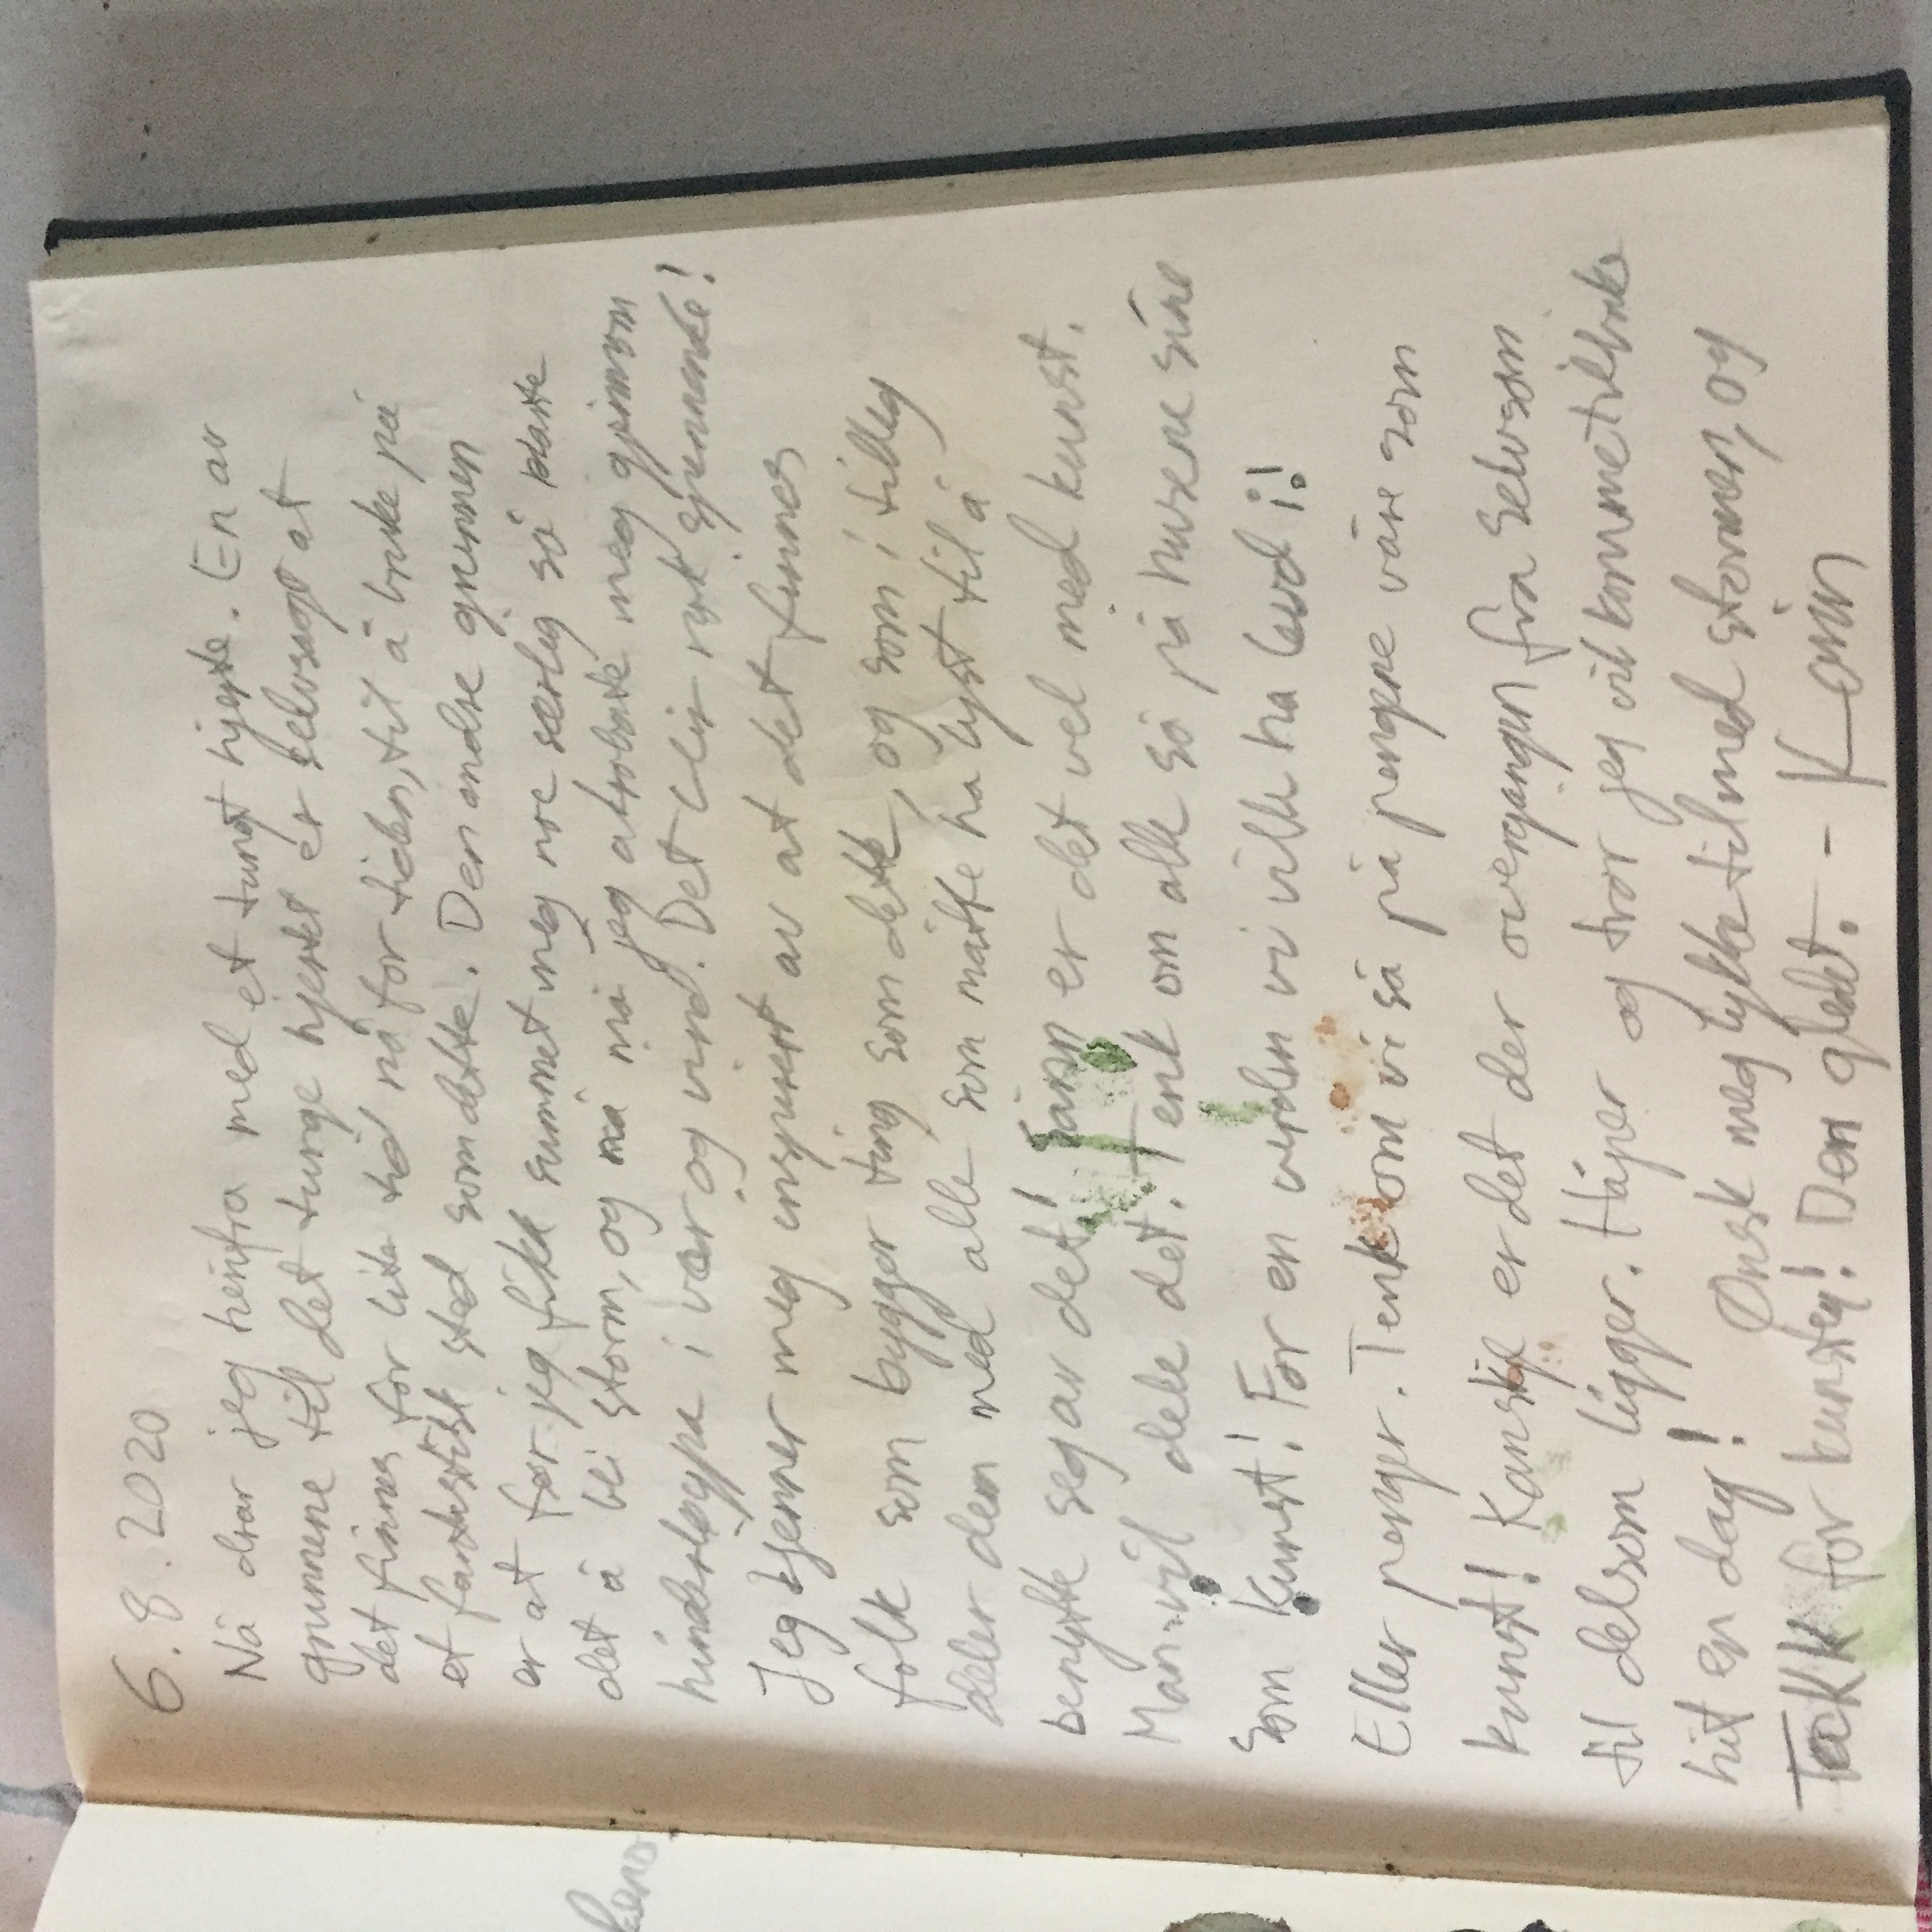 6.8.2020
Nå drar jeg herifra med et tungt hjerte. En av
grunnene til det tunge hjertet er selvsagt at
det finnes for lite tid nå for tiden, til å bruke på
et fantastisk sted som dette. Den andre grunnen
er at før jeg fikk summet meg noe særlig så klarte
det å bli storm, og nå må jeg akrobate meg gjennom
hinderløypa i vær og vind. Det blir nok spennende!
Jeg kjenner meg inspirert av at det finnes
folk som bygger ting som dette, og som i tillegg
deler dem med alle som måtte ha lyst til å
benytte seg av det! Sånn er det vel med kunst.
Man vil dele det. Tenk om alle så på husene sine
som kunst! For en verden vi ville ha levd i!
Eller penger. Tenk om vi så på pengene våre som
kunst! Kanskje er det der overgangen fra selvsom
til delsom ligger. Håper og tror jeg vil komme tilbake
hit en dag! Ønsk meg lykke til med stormen, og
Takk for kunsten! Den gledet. - Karin